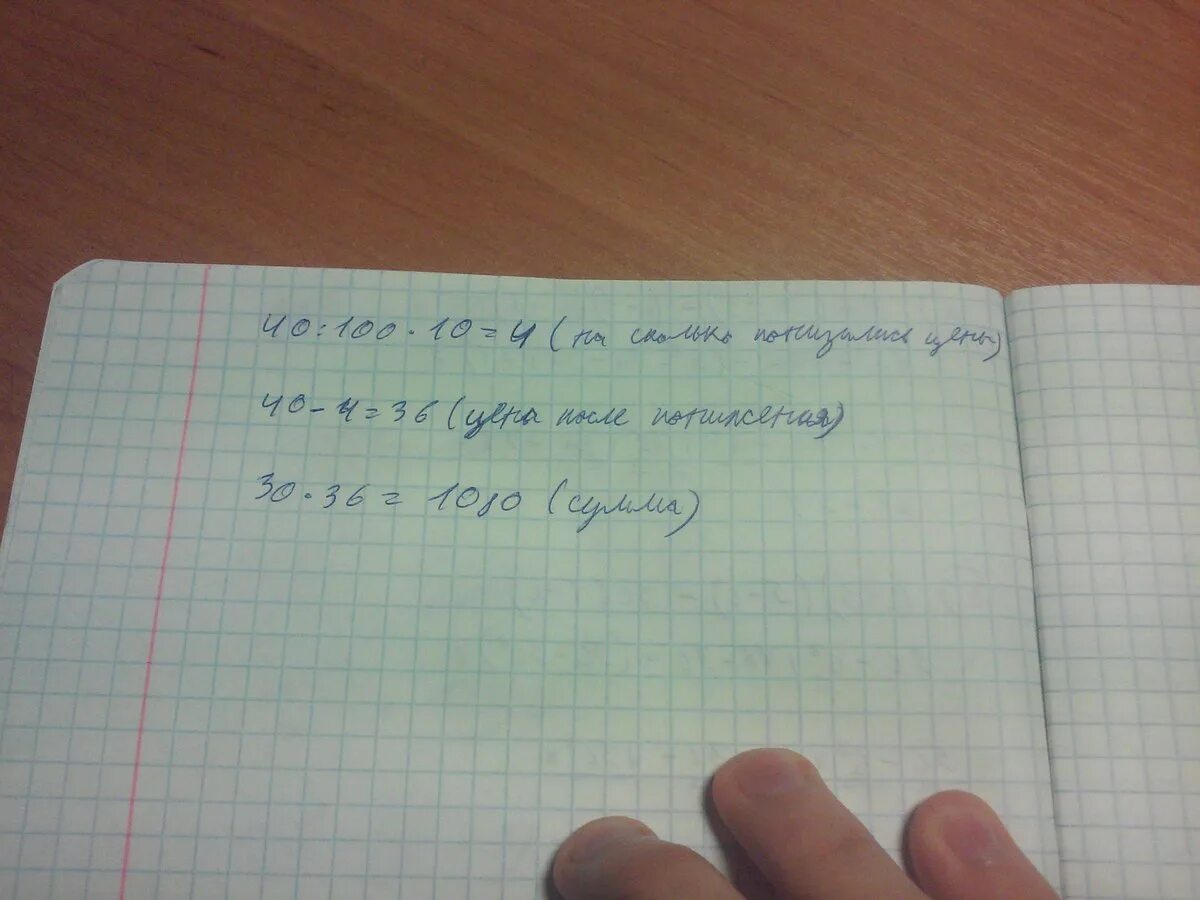 40:100·10=4 (на сколько понизились цены)
40-4=36 (цена после понижения)
30·36= 1080 (сумма)